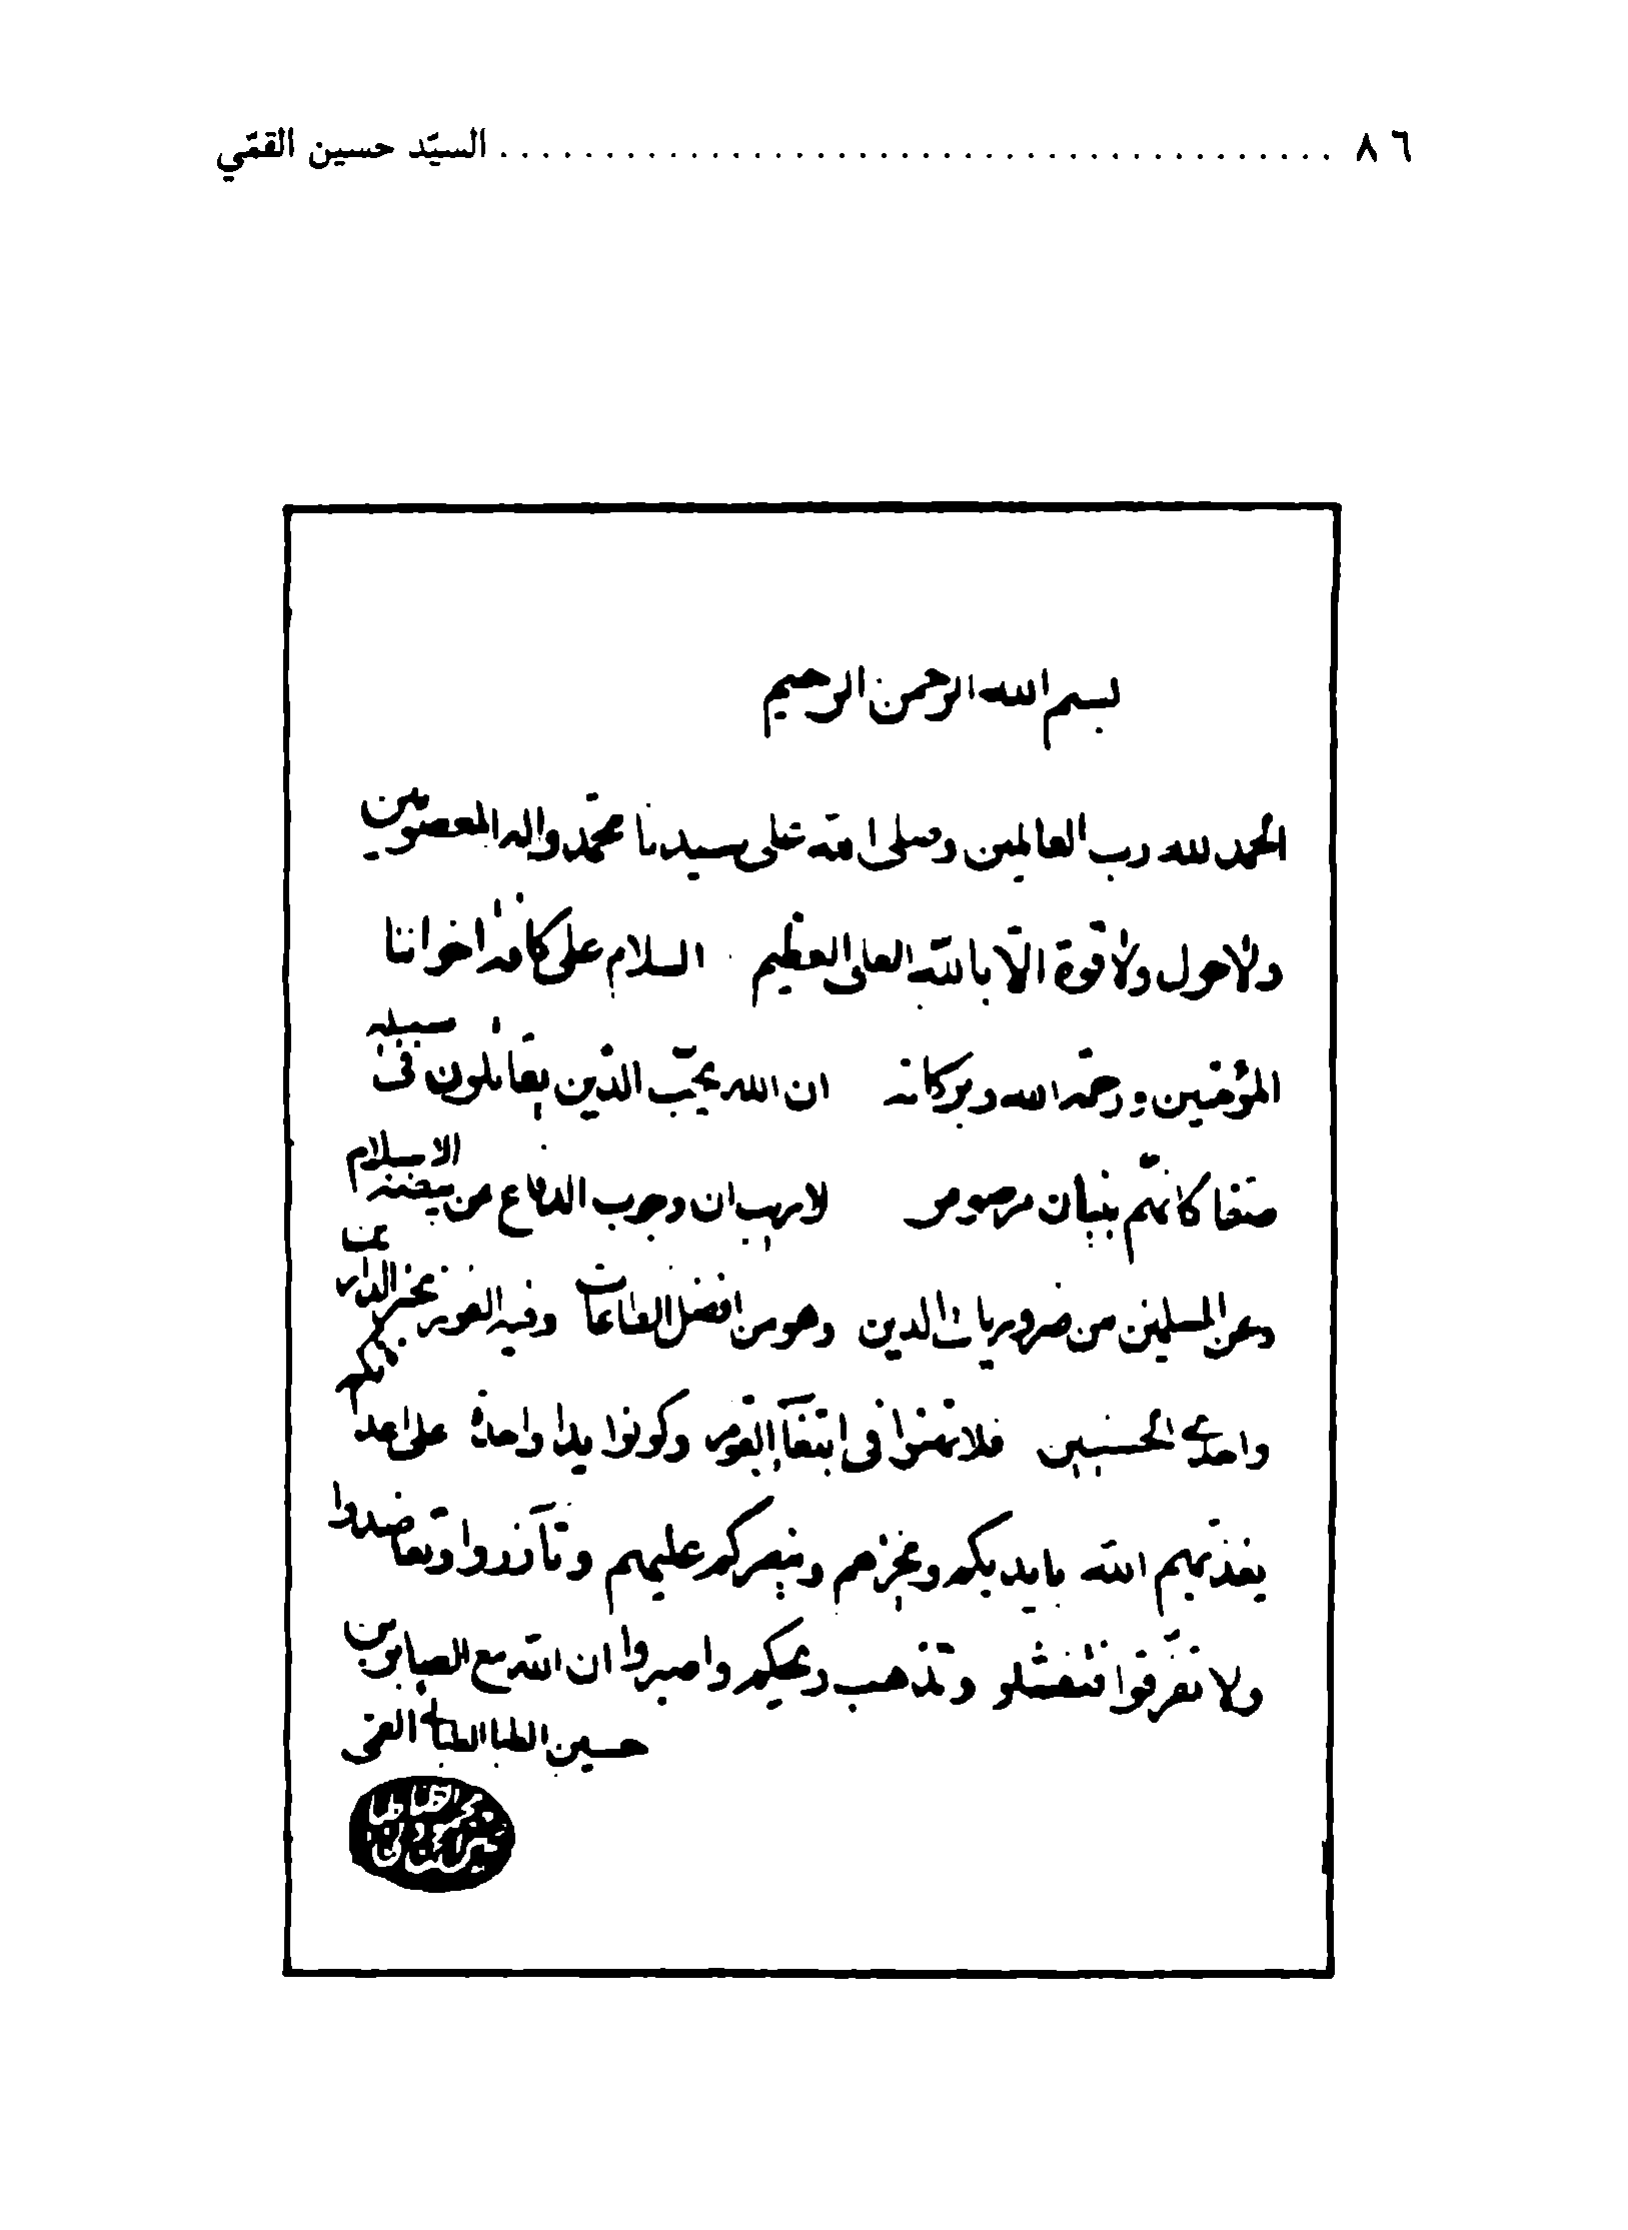 ٨٦ ........................................ السيّد حسين القمّي
بسم الله الرحمن الرحيم
الحمد لله رب العالمين وصلى الله على سيدنا محمّد واله المعصومين
ولا حول ولا قوة الّا باللّه العلى العظيم السلام على كافة اخواننا
المؤمنين ورحمة الله وبركاته ان الله يحبّ الذين يقاتلون فى سبيله
صفا كانهّم بنيان مرصوص لا ريب ان وجوب الدفاع عن بيضة الاسلام
وعن المسلمين من ضروريات الدين وهو من افضل الطاعات وفيه الفوز بخير الدارين
واحدى الحسنيين فلا تهنوا فى ابتغآء القوم وكونوا يدا واحدة على اعدائكم
يعذبهم اللّه بايديكم ويخزهم وينصركم عليهم وتآزروا وتعاضدوا
ولا تفرّقوا فتفشلو وتذهب ريحكم واصبروا ان اللّه مع الصابرين
حسين الطباطبائى القمى